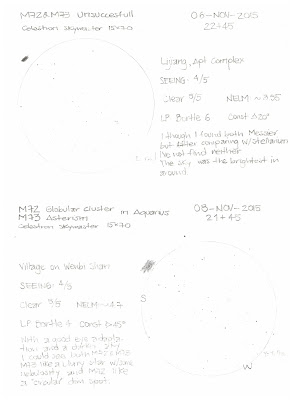 M72 & M73 Unsuccesfull
Celestron Skymaster 15x70
06-NOV-2015
22:45
Lujiang, Apt Complex
SEEING: 4/5
Clear 3/5 NELM ~3.95
LP Bortle 6 Const Δ20°
I though I found both Messier
but after comparing w/Stellarium
I've not find neither
The sky was the brightest in
around.
M72 Globular cluster in Aquarius
M73 Asterism
Celestron Skymaster 15x70
08-NOV-2015
21:45
Village on Shan
SEEING: 4/5
Clear 3/5 NELM ~4.7
LP Bortle 4 Const Δ45°
With a good eye adapta-
tion and a darker sky
I could see both M72 & M73
M73 like a blurry star w/some
nebulosity and M72 like
a "circular" dim spot.
S
W